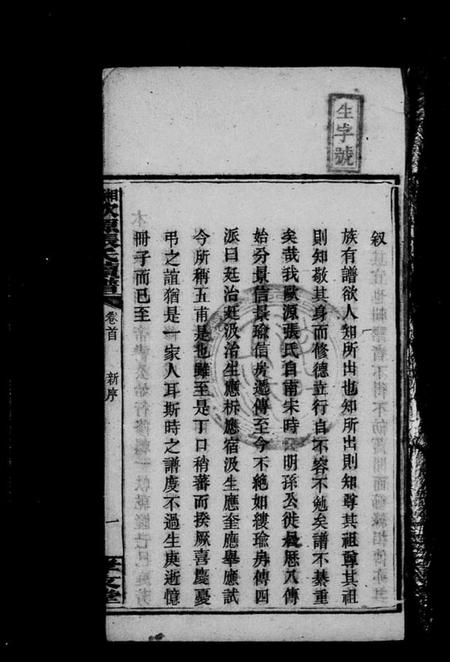 生字號
叙
族有譜欲人知所出也知所出則知尊其祖尊其祖
則知敬其身而修德立行自不容不勉矣譜不綦重
矣哉我歐源張氏自南宋時明孫公徙長厯八傳
始分景信景瑜信房遞傳至今不絶如縷瑜房傳四
派曰廷治廷汲治生應栟應宿汲生應奎應舉應試
今所稱五甫是也雖至是丁口稍蕃而揆厥喜慶憂
弔之誼猶是一家人耳斯時之譜度不過生庚逝憶
冊子而已至
卷首
新序
一
孝友堂